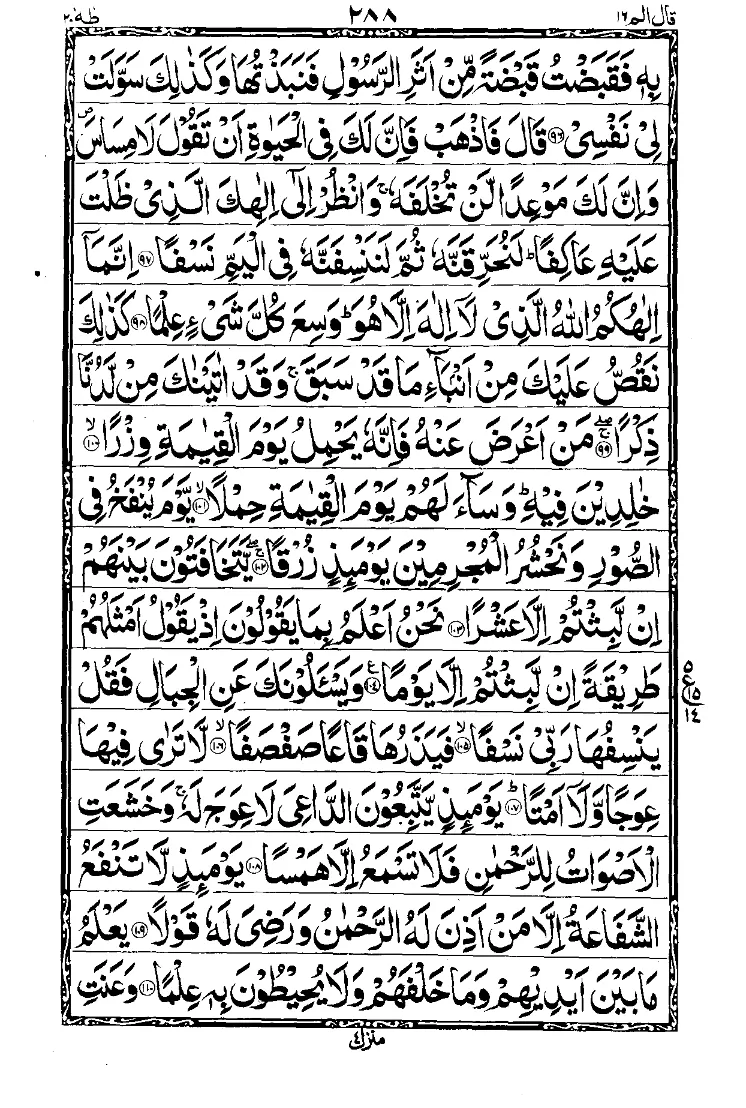 قال الم ١٦ ٢٨٨ طٰهٰ ٢٠
بِهٖ فَقَبَضْتُ قَبْضَةً مِّنْ اَثَرِ الرَّسُوْلِ فَنَبَذْتُهَا وَكَذٰلِكَ سَوَّلَتْ
لِیْ نَفْسِیْ ﴿۹۶﴾ قَالَ فَاذْهَبْ فَاِنَّ لَكَ فِی الْحَیٰوةِ اَنْ تَقُوْلَ لَا مِسَاسَ ۪
وَاِنَّ لَكَ مَوْعِدًا لَّنْ تُخْلَفَهٗ ۚ وَانْظُرْ اِلٰۤی اِلٰهِكَ الَّذِیْ ظَلْتَ
عَلَیْهِ عَاكِفًا ؕ لَنُحَرِّقَنَّهٗ ثُمَّ لَنَنْسِفَنَّهٗ فِی الْیَمِّ نَسْفًا ﴿۹۷﴾ اِنَّمَاۤ
اِلٰهُكُمُ اللّٰهُ الَّذِیْ لَاۤ اِلٰهَ اِلَّا هُوَ ؕ وَسِعَ كُلَّ شَیْءٍ عِلْمًا ﴿۹۸﴾ كَذٰلِكَ
نَقُصُّ عَلَیْكَ مِنْ اَنْۢبَآءِ مَا قَدْ سَبَقَ ۚ وَقَدْ اٰتَیْنٰكَ مِنْ لَّدُنَّا
ذِكْرًا ﴿۹۹﴾ۖۚ مَنْ اَعْرَضَ عَنْهُ فَاِنَّهٗ یَحْمِلُ یَوْمَ الْقِیٰمَةِ وِزْرًا ﴿۱۰۰﴾ۙ
خٰلِدِیْنَ فِیْهِ ؕ وَسَآءَ لَهُمْ یَوْمَ الْقِیٰمَةِ حِمْلًا ﴿۱۰۱﴾ۙ یَّوْمَ یُنْفَخُ فِی
الصُّوْرِ وَنَحْشُرُ الْمُجْرِمِیْنَ یَوْمَىِٕذٍ زُرْقًا ﴿۱۰۲﴾ۖۚ یَّتَخَافَتُوْنَ بَیْنَهُمْ
اِنْ لَّبِثْتُمْ اِلَّا عَشْرًا ﴿۱۰۳﴾ نَحْنُ اَعْلَمُ بِمَا یَقُوْلُوْنَ اِذْ یَقُوْلُ اَمْثَلُهُمْ
طَرِیْقَةً اِنْ لَّبِثْتُمْ اِلَّا یَوْمًا ﴿۱۰۴﴾ ع وَیَسْـَٔلُوْنَكَ عَنِ الْجِبَالِ فَقُلْ
٥ ع ١٥ ١٤
یَنْسِفُهَا رَبِّیْ نَسْفًا ﴿۱۰۵﴾ۙ فَیَذَرُهَا قَاعًا صَفْصَفًا ﴿۱۰۶﴾ۙ لَّا تَرٰی فِیْهَا
عِوَجًا وَّلَاۤ اَمْتًا ﴿۱۰۷﴾ؕ یَوْمَىِٕذٍ یَّتَّبِعُوْنَ الدَّاعِیَ لَا عِوَجَ لَهٗ ۚ وَخَشَعَتِ
الْاَصْوَاتُ لِلرَّحْمٰنِ فَلَا تَسْمَعُ اِلَّا هَمْسًا ﴿۱۰۸﴾ یَوْمَىِٕذٍ لَّا تَنْفَعُ
الشَّفَاعَةُ اِلَّا مَنْ اَذِنَ لَهُ الرَّحْمٰنُ وَرَضِیَ لَهٗ قَوْلًا ﴿۱۰۹﴾ یَعْلَمُ
مَا بَیْنَ اَیْدِیْهِمْ وَمَا خَلْفَهُمْ وَلَا یُحِیْطُوْنَ بِهٖ عِلْمًا ﴿۱۱۰﴾ وَعَنَتِ
منزل ٤